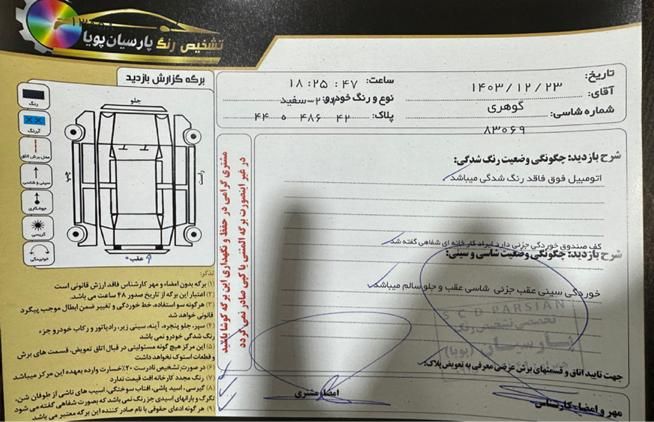 تشخیص رنگ پارسیان پویا
برگه گزارش بازدید
تاریخ: ۱۴۰۳/۱۲/۲۳
ساعت: ۱۸:۲۵:۴۷
آقای: گوهری
نوع و رنگ خودرو: سفید
شماره شاسی: ۸۳۰۶۹
پلاک:
جلو
عقب
چپ
راست
رنگ
آبرنگ
محل برش اتاق
سینی و شاسی
جوشکاری
گریسی
خوردگی
مشتری گرامی در حفظ و نگهداری این برگه کوشا باشید
در غیر اینصورت برگه المثنی یا کپی صادر نمی گردد
شرح بازدید: چگونگی وضعیت رنگ شدگی:
اتومبیل فوق فاقد رنگ شدگی میباشد
کف صندوق خوردگی جزئی دارد ایراد کارخانه ای شفاهی گفته شد
شرح بازدید: چگونگی وضعیت شاسی و سینی:
خوردگی سینی عقب جزئی شاسی عقب و جلو سالم میباشد
SCD PARSIAN
تخصصی تشخیص رنگ
پارسیان
(پویا)
جهت تایید اتاق و قسمتهای برش عرضی معرفی به تعویض پلاک:
امضاء مشتری
مهر و امضاء کارشناس
تذکر:
۱) برگه بدون امضاء و مهر کارشناس فاقد ارزش قانونی است
۲) اعتبار این برگه از تاریخ صدور ۴۸ ساعت می باشد.
۳) هرگونه سو استفاده، خط خوردگی و تغییر ضمن ابطال موجب پیگرد
قانونی خواهد شد
۴) سپر، جلو پنجره، آینه، سینی زیر، رادیاتور و رکاب خودرو جزء
رنگ شدگی خودرو نمی باشد
۵) این مرکز هیچ گونه مسئولیتی در قبال اتاق تعویض، قسمت های برش
و قطعات استوک نخواهد داشت
۶) در صورت تشخیص نادرست ۲۰٪ خسارت وارده بعهده این مرکز میباشد
۷) رنگ مجدد کارخانه افت قیمت ندارد
۸) گیرسی، اسید پاشی، آفتاب سوختگی، آسیب های ناشی از طوفان شن،
تگرگ و بارانهای اسیدی جز رنگ نمی باشد که بصورت شفاهی گفته می شود
۹) هر گونه ادعای حقوقی با نام صادر کننده این برگه معتبر می باشد